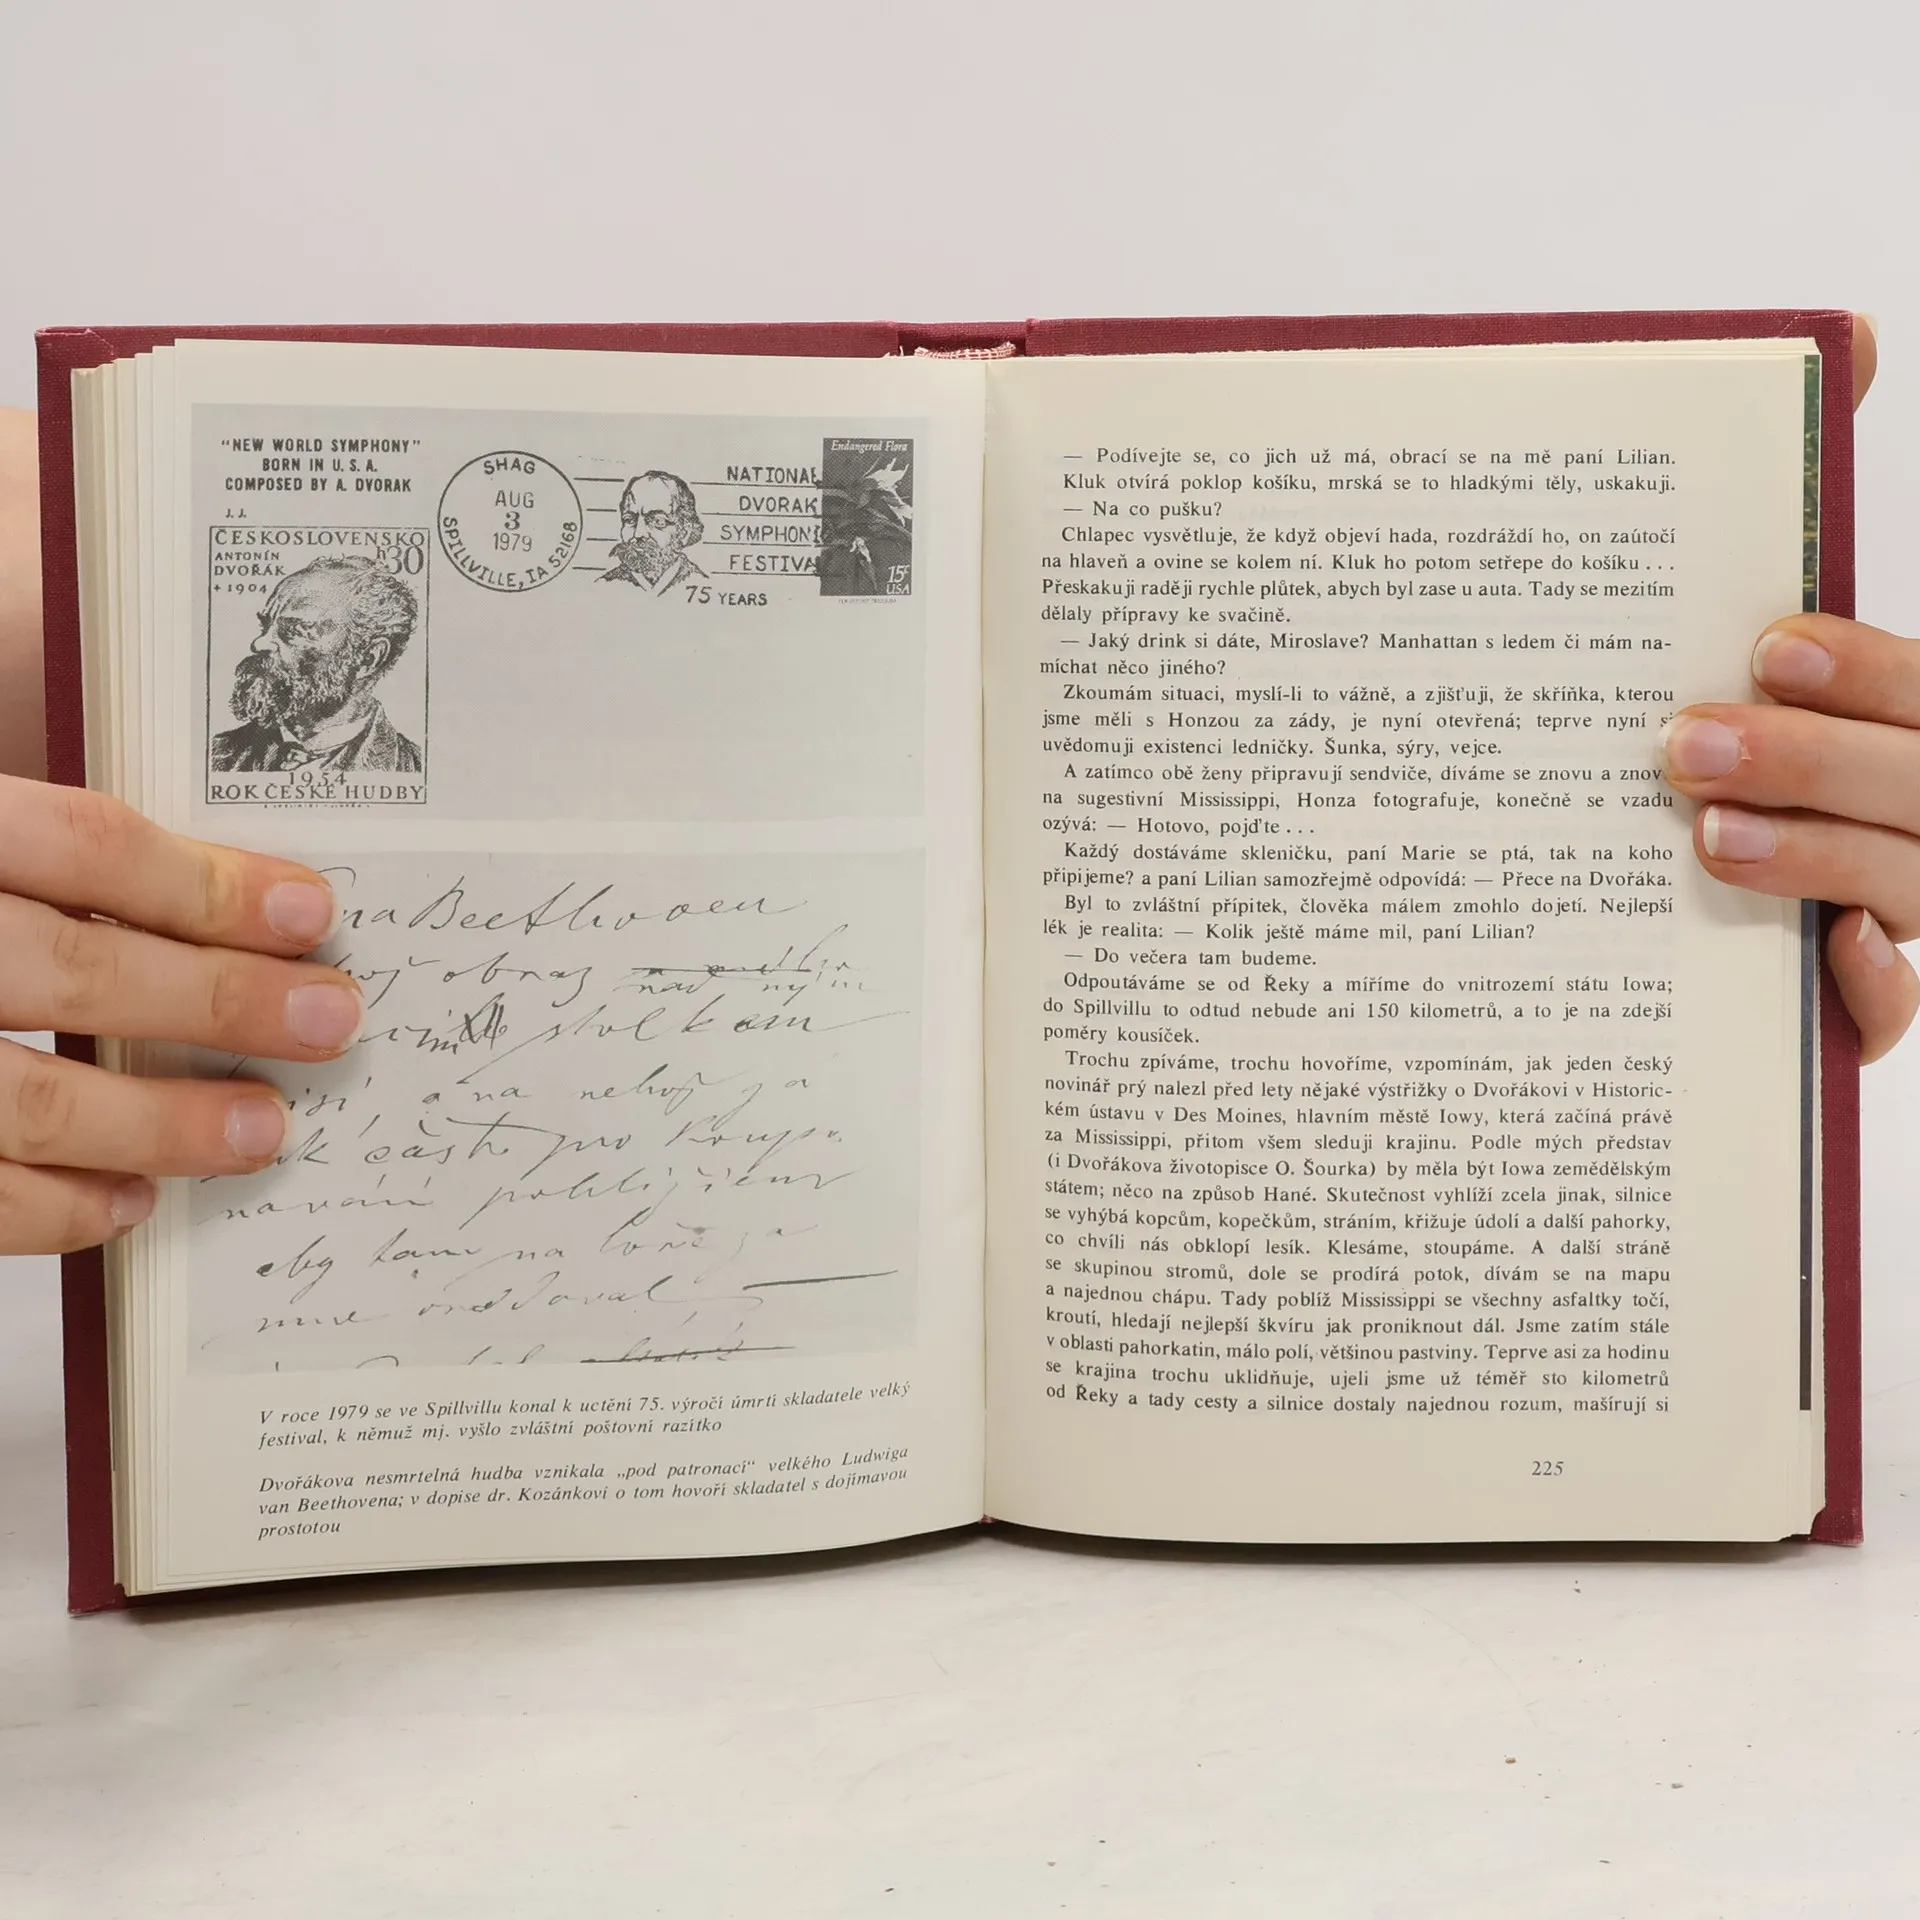 "NEW WORLD SYMPHONY"
BORN IN U.S.A.
COMPOSED BY A. DVORAK
J.J.
ČESKOSLOVENSKO
ANTONÍN
DVOŘÁK
+1904
h30
1954
ROK ČESKÉ HUDBY
SHAG
AUG
3
1979
SPILLVILLE, IA 52168
NATIONAL
DVORAK
SYMPHON
FESTIVA
75 YEARS
Endangered Flora
15c
USA
na Beethoven
obraz
nad
stolkem
a na nehož
často pro
pohlížím
aby tam na
mne orodoval
V roce 1979 se ve Spillvillu konal k uctění 75. výročí úmrtí skladatele velký
festival, k němuž mj. vyšlo zvláštní poštovní razítko
Dvořákova nesmrtelná hudba vznikala „pod patronací“ velkého Ludwiga
van Beethovena; v dopise dr. Kozánkovi o tom hovoří skladatel s dojímavou
prostotou
— Podívejte se, co jich už má, obrací se na mě paní Lilian.
Kluk otvírá poklop košíku, mrská se to hladkými těly, uskakuji.
— Na co pušku?
Chlapec vysvětluje, že když objeví hada, rozdráždí ho, on zaútočí
na hlaveň a ovine se kolem ní. Kluk ho potom setřepe do košíku ...
Přeskakuji raději rychle plůtek, abych byl zase u auta. Tady se mezitím
dělaly přípravy ke svačině.
— Jaký drink si dáte, Miroslave? Manhattan s ledem či mám na-
míchat něco jiného?
Zkoumám situaci, myslí-li to vážně, a zjišťuji, že skříňka, kterou
jsme měli s Honzou za zády, je nyní otevřená; teprve nyní si
uvědomuji existenci ledničky. Šunka, sýry, vejce.
A zatímco obě ženy připravují sendviče, díváme se znovu a znovu
na sugestivní Mississippi, Honza fotografuje, konečně se vzadu
ozývá: — Hotovo, pojďte ...
Každý dostáváme skleničku, paní Marie se ptá, tak na koho
připijeme? a paní Lilian samozřejmě odpovídá: — Přece na Dvořáka.
Byl to zvláštní přípitek, člověka málem zmohlo dojetí. Nejlepší
lék je realita: — Kolik ještě máme mil, paní Lilian?
— Do večera tam budeme.
Odpoutáváme se od Řeky a míříme do vnitrozemí státu Iowa;
do Spillvillu to odtud nebude ani 150 kilometrů, a to je na zdejší
poměry kousíček.
Trochu zpíváme, trochu hovoříme, vzpomínám, jak jeden český
novinář prý nalezl před lety nějaké výstřižky o Dvořákovi v Historic-
kém ústavu v Des Moines, hlavním městě Iowy, která začíná právě
za Mississippi, přitom všem sleduji krajinu. Podle mých představ
(i Dvořákova životopisce O. Šourka) by měla být Iowa zemědělským
státem; něco na způsob Hané. Skutečnost vyhlíží zcela jinak, silnice
se vyhýbá kopcům, kopečkům, stráním, křižuje údolí a další pahorky,
co chvíli nás obklopí lesík. Klesáme, stoupáme. A další stráně
se skupinou stromů, dole se prodírá potok, dívám se na mapu
a najednou chápu. Tady poblíž Mississippi se všechny asfaltky točí,
kroutí, hledají nejlepší škvíru jak proniknout dál. Jsme zatím stále
v oblasti pahorkatin, málo polí, většinou pastviny. Teprve asi za hodinu
se krajina trochu uklidňuje, ujeli jsme už téměř sto kilometrů
od Řeky a tady cesty a silnice dostaly najednou rozum, mašírují si
225